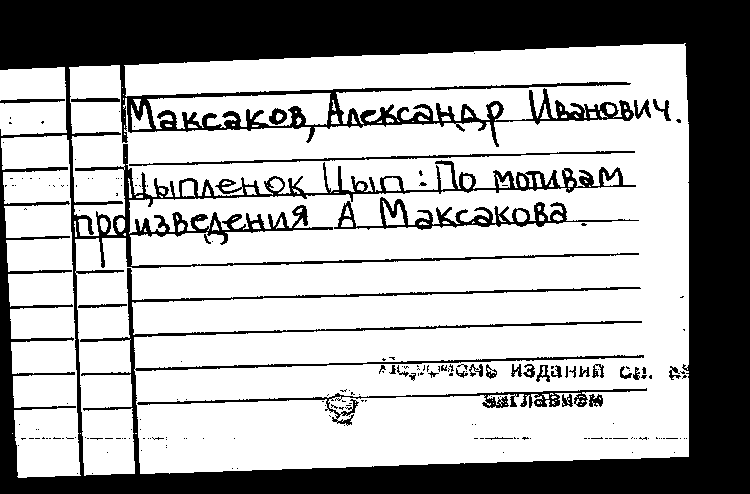 Максаков, Александр Иванович.
Цыпленок Цып : По мотивам
произведения А Максакова.
Перечень изданий см. за
заглавием